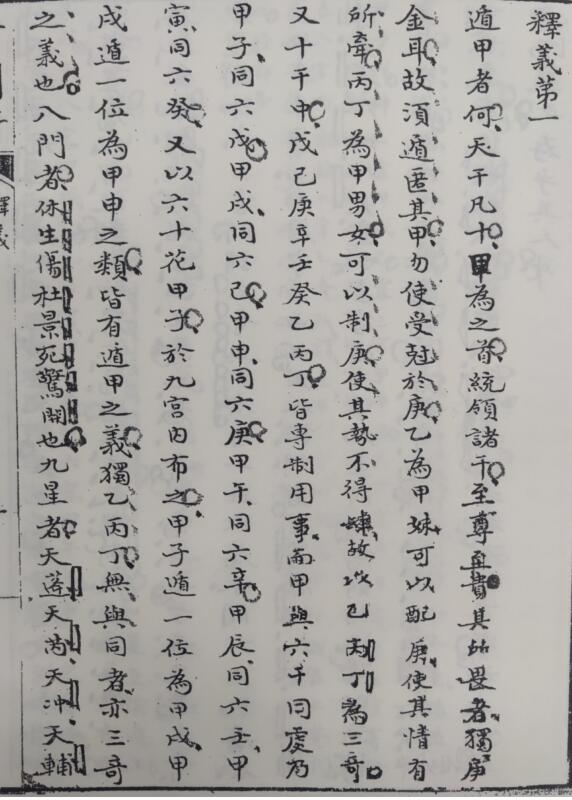 釋義第一
遁甲者何天干凡十甲為之首統領諸干至尊至貴其所畏者獨庚
金耳故須遁匿其甲勿使受尅於庚乙為甲妹可以配庚使其情有
所牽丙丁為甲男女可以制庚使其勢不得肆故以乙丙丁為三奇
又十干中戊己庚辛壬癸乙丙丁皆專制用事而甲與六干同處乃
甲子同六戊甲戌同六己甲申同六庚甲午同六辛甲辰同六壬甲
寅同六癸又以六十花甲子於九宮內布之甲子遁一位為甲戌甲
戌遁一位為甲申之類皆有遁甲之義獨乙丙丁無與同者亦三奇
之義也八門者休生傷杜景死驚開也九星者天蓬天芮天冲天輔
釋義